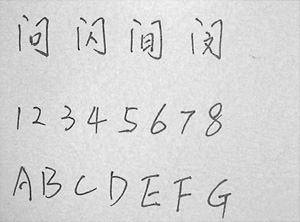 问 闪 间 闵
1 2 3 4 5 6 7 8
A B C D E F G